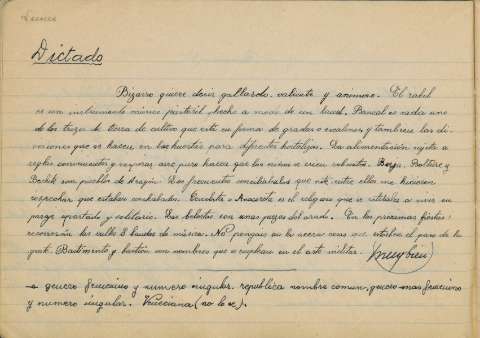 Dictado
Bizarro quiere decir gallardo, valiente y animoso. El rabel
es un instrumento músico pastoril hecho a modo de un laud. Bancal es cada uno
de los trozos de tierra de cultivo que esta en forma de gradas o escalones, y tambien las di-
visiones que se hacen en las huertas para diferentes hortalizas. La alimentación sujeta a
reglas convenientes y respirar aire puro hacen que los niños se crien robustos. Borja, Boltaña y
son pueblos de Aragón. Los frecuentes conciliabulos que noté entre ellos me hicieron
sospechar que estaban confabulados. Cenobita o Anacoreta es el religioso que se retiraba a vivir en
paraje apartado y solitario. Las belortas son unas piezas del arado. En las proximas fiestas
recorrerán las calles 3 bandas de música. No pongais en la acera cosas que estorben el paso de la
gente. Bastimento y bastión son nombres que se emplean en el arte militar. muy bien
genero femenino y numero singular. republica nombre comun, genero femenino
y numero singular. (no lo se).